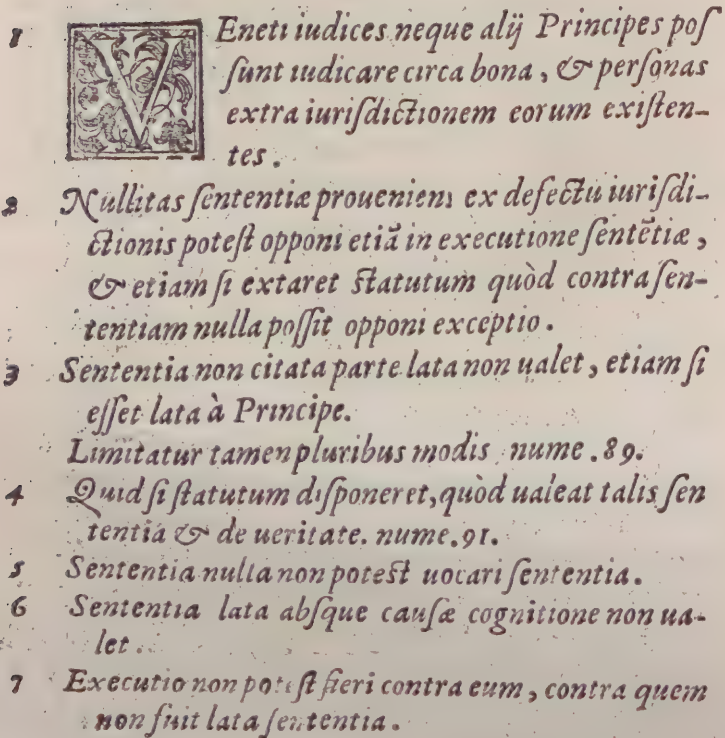 1 VEneti iudices neque alij Principes pos
sunt iudicare circa bona, & personas
extra iurisdictionem eorum existen-
tes.
2 Nullitas sententiæ proueniens ex defectu iurisdi-
ctionis potest opponi etiã in executione sentẽtiæ,
& etiam si extaret statutum quòd contra sen-
tentiam nulla possit opponi exceptio.
3 Sententia non citata parte lata non ualet, etiam si
esset lata à Principe.
Limitatur tamen pluribus modis nume .89.
4 Quid si statutum disponeret, quòd ualeat talis sen
tentia & de ueritate. nume.91.
5 Sententia nulla non potest uocari sententia.
6 Sententia lata absque causæ cognitione non ua-
let.
7 Executio non potest fieri contra eum, contra quem
non fuit lata sententia.